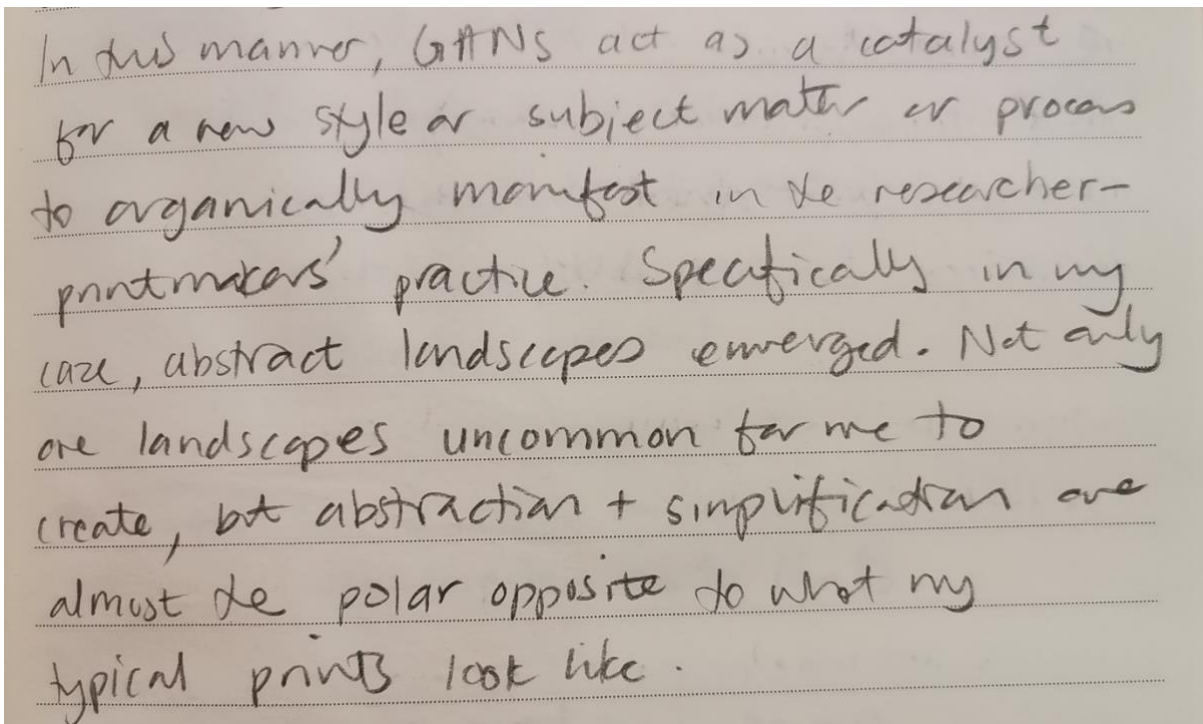 In this manner, GANs act as a catalyst
for a new style or subject matter or process
to organically manifest in the researcher-
printmakers' practice. Specifically in my
case, abstract landscapes emerged. Not only
are landscapes uncommon for me to
create, but abstraction + simplification are
almost the polar opposite to what my
typical prints look like.